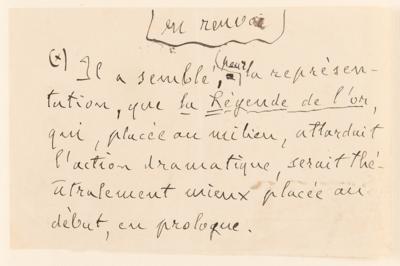 en renvoi
(x) Il a semblé, pour la représen-
tation, que la Légende de l'or,
qui, placée au milieu, attardait
l'action dramatique, serait thé-
âtralement mieux placée au
début, en prologue.